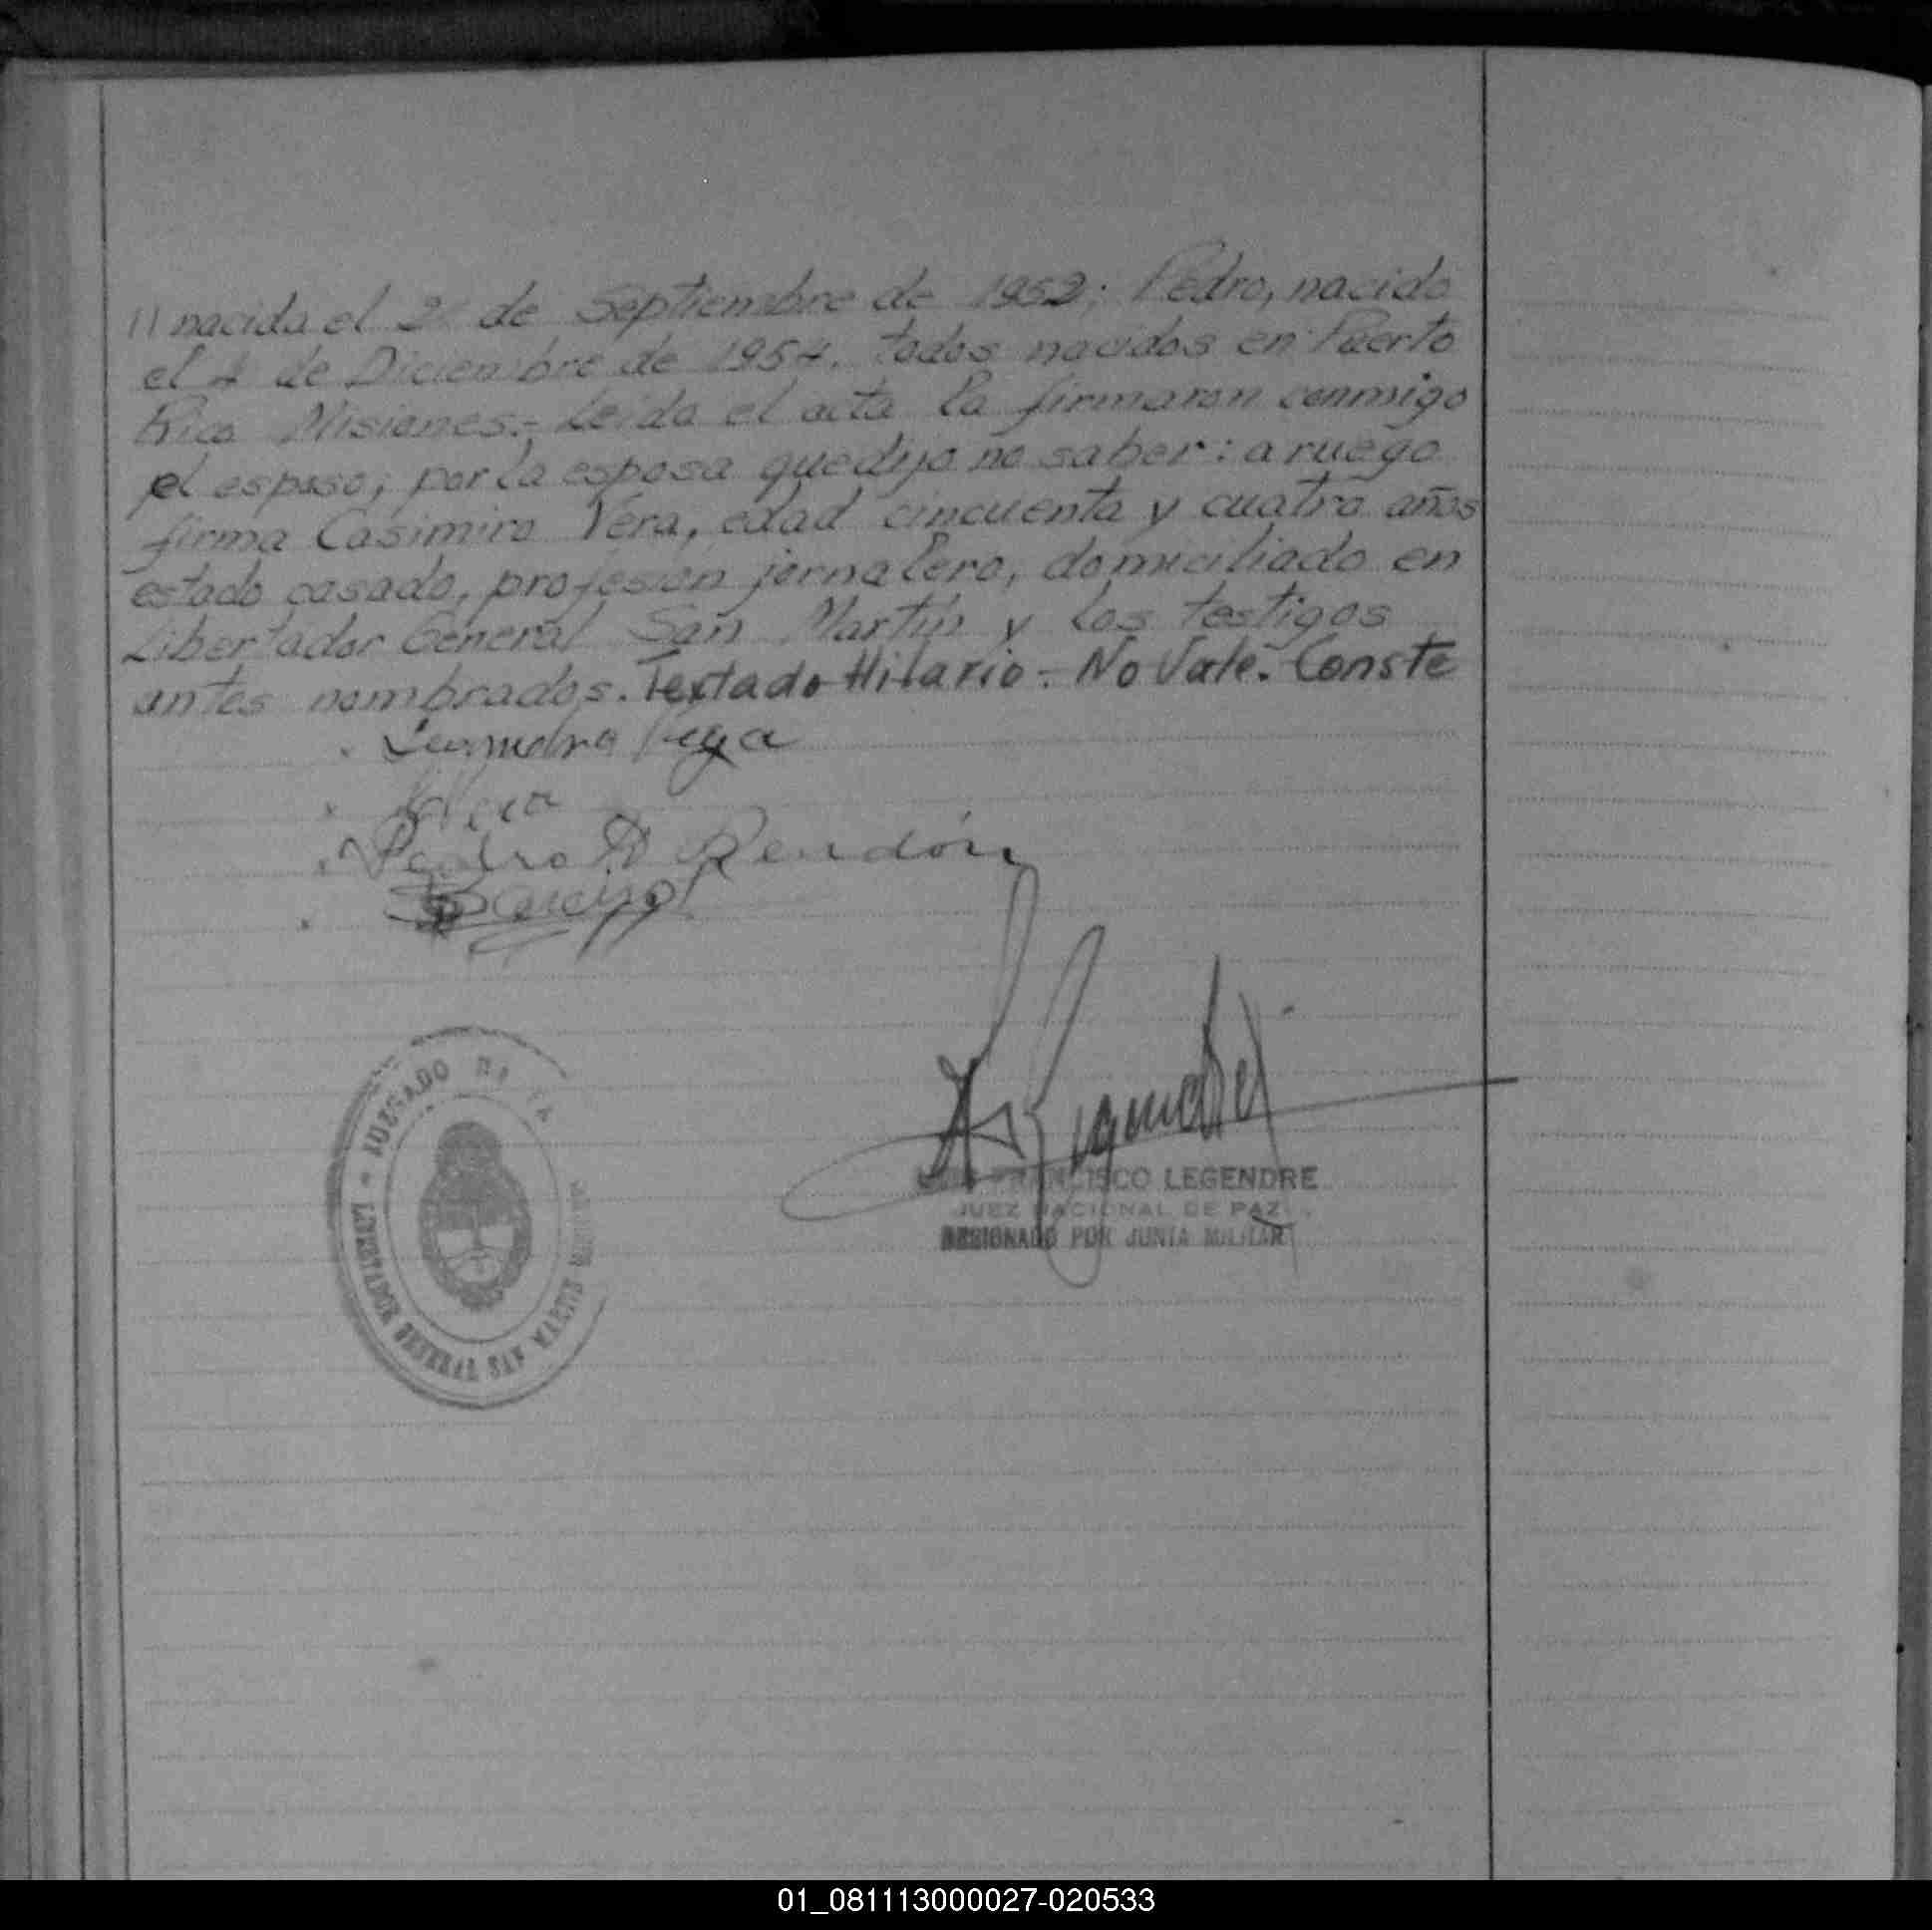 11 nacida el 2 de Septiembre de 1952; Pedro, nacido
el 4 de Diciembre de 1954. todos nacidos en Puerto
Rico Misiones.- Leida el acta la firmaron conmigo
el esposo; por la esposa que dijo no saber: a ruego
firma Casimiro Vera, edad cincuenta y cuatro años
estado casado, profesion jornalero, domiciliado en
Libertador General San Martín y los testigos
antes nombrados. Testado Hilario - No Vale. Conste
Vera
Pedro A Rendón
JUZGADO DE PAZ
LIBERTADOR GENERAL SAN MARTIN MISIONES
FRANCISCO LEGENDRE
JUEZ NACIONAL DE PAZ
DESIGNADO POR JUNTA MILITAR
01_081113000027-020533